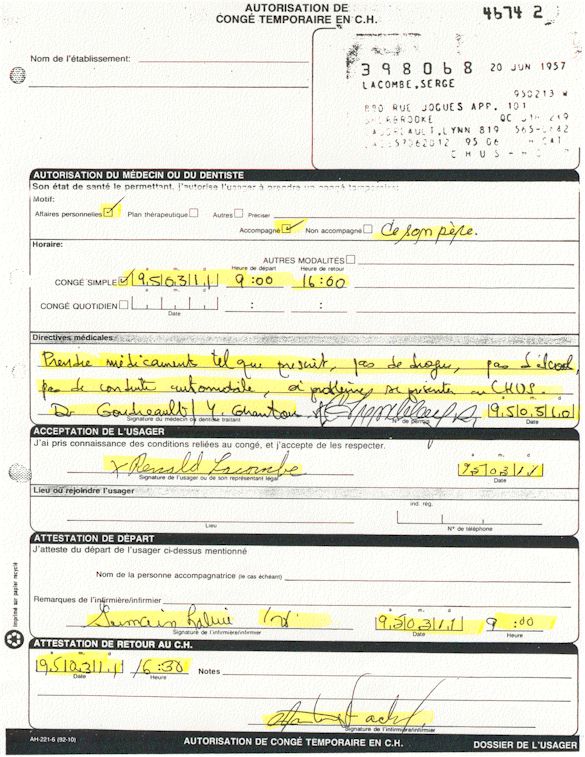 AUTORISATION DE
CONGÉ TEMPORAIRE EN C.H.
4674 2
Nom de l'établissement:
398068 20 JUN 1957
LACOMBE, SERGE
950213
RUE JOGUES APP. 101
QC
LYNN 819
95 06
CHUS
AUTORISATION DU MÉDECIN OU DU DENTISTE
Son état de santé le permettant, j'autorise l'usager à prendre un congé temporaire:
Motif:
Affaires personnelles Plan thérapeutique Autres Préciser
Accompagné Non accompagné de son père.
Horaire:
AUTRES MODALITÉS
a. m. d Heure de départ Heure de retour
CONGÉ SIMPLE 95 03 11 9:00 16:00
CONGÉ QUOTIDIEN : :
Date
Directives médicales
Prendre médicaments tel que prescrit, pas de drogue, pas d'alcool,
pas de conduite automobile, si problèmes se présenter au CHUS
Dr Goudreault/ Y. 95 03 10
Signature du médecin ou dentiste traitant N° de permis Date
ACCEPTATION DE L'USAGER
J'ai pris connaissance des conditions reliées au congé, et j'accepte de les respecter.
x Renald Lacombe 95 03 11
Signature de l'usager ou de son représentant légal Date
Lieu où rejoindre l'usager
ind. rég.
Lieu N° de téléphone
ATTESTATION DE DÉPART
J'atteste du départ de l'usager ci-dessus mentionné
Nom de la personne accompagnatrice (le cas échéant)
Remarques de l'infirmière/infirmier
95 03 11 9:00
Signature de l'infirmière/infirmier Date Heure
ATTESTATION DE RETOUR AU C.H.
95 03 11 16:30 Notes
Date Heure
Signature de l'infirmière/infirmier
Imprimé sur papier recyclé
AH-221-6 (92-10) AUTORISATION DE CONGÉ TEMPORAIRE EN C.H. DOSSIER DE L'USAGER